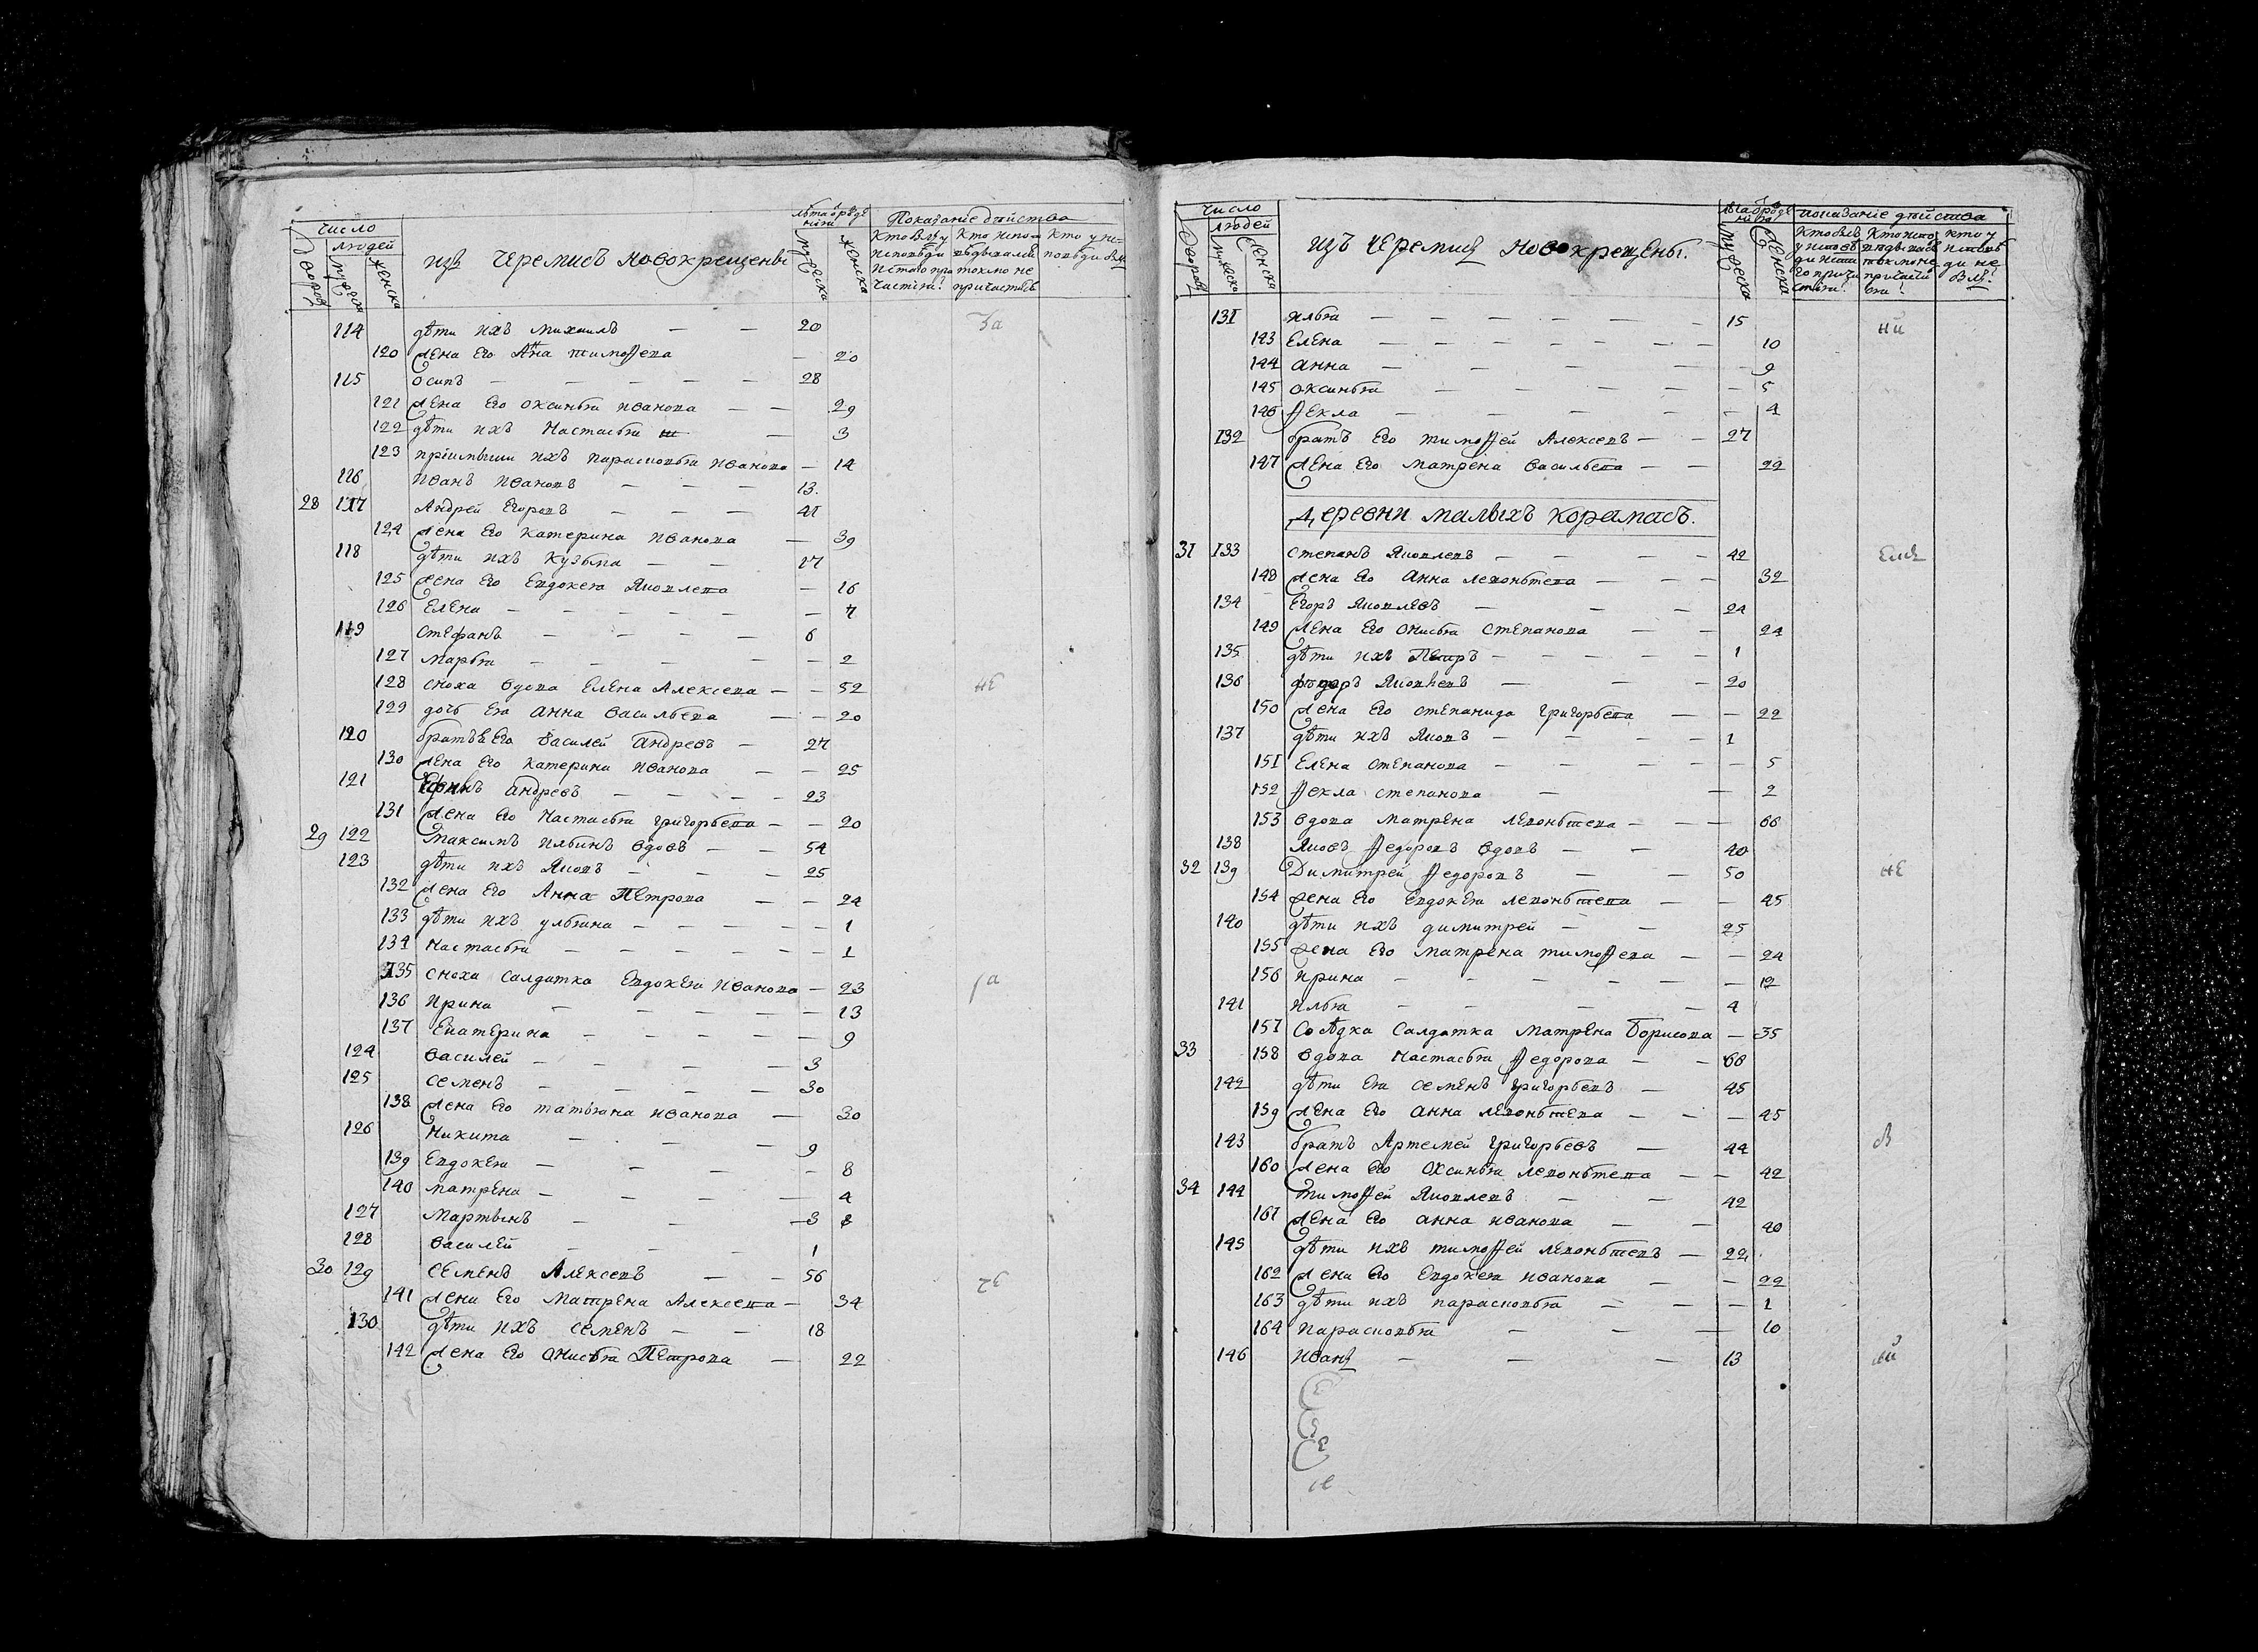 число
людей
дворов
мужеска
женска
изъ черемисъ новокрещены
лѣта о рожде
нии
мужеска
женска
Показание дѣйства
Кто былъ у Кто испо Кто у ис
исповѣди вѣдывался повѣди не былъ
и с то го при токмо не
частия? причастився
114 дѣти ихъ михаилъ — — 20
120 жена Его Анна тимоѳева — 20
115 осипъ — — — — — 28
121 жена Его оксинья иванова — — 29
122 дѣти ихъ Настасья — 3
123 приимыши ихъ парасковья иванова — 14
116 Иванъ Ивановъ — — — 13.
28 117 Андрей Егоровъ — — — 41
124 жена Его катерина иванова — 39
118 дѣти ихъ Кузьма — — 17
125 жена Его Евдокея Яковлева — 16
126 Елена — — — — — — 7
119 Стефанъ — — — — 6
127 марья — — — — — — 2
128 сноха вдова Елена Алексеева — — 52
129 дочь Ея анна васильева — — 20
120 братъ Его василей андреевъ — 27
130 жена Его катерина иванова — — 25
121 андреевъ — — — — 23
131 жена Его Настасья григорьева — — 20
29 122 максимъ ильинъ вдовъ — — 54
123 дѣти ихъ Яковъ — — — 25
132 жена Его Анна Петрова — — 24
133 дѣти ихъ ульяна — — — — — 1
134 Настасья — — — — — 1
135 сноха салдатка Евдокея иванова — 23
136 Ирина — — — — — 13
137 Екатерина — — — — — 9
124 василей — — — — 3
125 семенъ — — — — 30
138 жена Его татьяна иванова — 30
126 Никита — — — 9
139 Евдокея — — — — 8
140 матрена — — — — 4
127 Мартынъ — — — 3
128 василей — — — 1
30 129 семенъ Алексеевъ — — 56
141 жена Его Матрена Алексеева — 34
130 дѣти ихъ семенъ — — 18
142 жена Его Онисья Петрова — 22
число
людей
дворов
мужеска
женска
изъ черемисъ Новокрещены.
лѣта о рожде
нии
мужеска
женска
показание дѣйства
Кто былъ Кто испо кто у
у исповѣ вѣдывался исповѣ
ди и с то токмо не ди не
го прича причасти былъ?
стия? вся?
131 илья — — — — — — 15
143 Елена — — — — — — — 10
144 анна — — — — 9
145 оксинья — — — — — 5
146 ѳекла — — — — — — 4
132 братъ Его тимоѳей Алексеевъ — — 27
147 жена Его матрена васильева — — 22
деревни малыхъ корамасъ.
31 133 степанъ Яковлевъ — — — — 42
148 жена Его анна леоньтева — — — 32
134 Егоръ Яковлевъ — — — 24
149 жена Его онисья степанова — — 24
135 дѣти ихъ Петръ — — — — — 1
136 Яковлевъ — — — 20
150 жена Его степанида григорьева — — 22
137 дѣти ихъ Яковъ — — — — 1
151 Елена степанова — — — — — 5
152 ѳекла степанова — — 2
153 вдова матрена леоньтева — — — 66
138 Яковъ ѳедоровъ вдовъ — — 40
32 139 Димитрей ѳедоровъ — — 50
154 жена Его Евдокея леоньтева — — 45
140 дѣти ихъ димитрей — — 25
155 жена Его матрена тимоѳева — — 24
156 ирина — — — — — — 12
141 илья — — — — — 4
157 Солдка салдатка матрена борисова — 35
33 158 вдова Настасья ѳедорова — — 66
142 дѣти Ея семенъ григорьевъ — 45
159 жена Его анна леоньтева — — — 45
143 братъ Артемей григорьевъ — 44
160 жена Его Оксинья леоньтева — — 42
34 144 тимоѳей Яковлевъ — — 42
161 жена Его анна иванова — — 40
145 дѣти ихъ тимоѳей леоньтевъ — 22
162 жена Его Евдокея иванова — — 22
163 дѣти ихъ парасковья — — — 1
164 парасковья — — — 10
146 Иванъ — — — 13